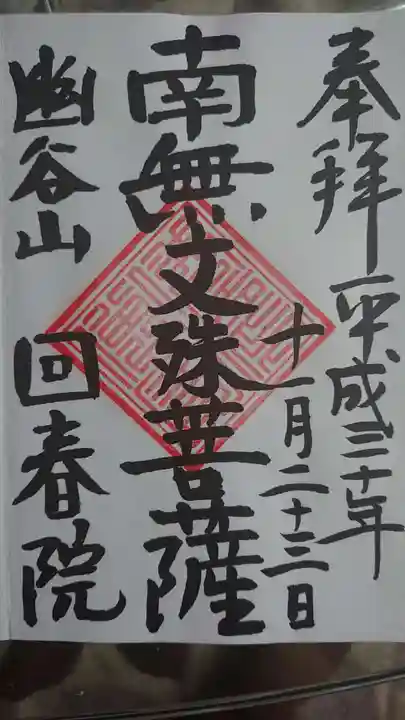 奉拝
平成三十年
十一月二十三日
南無文殊菩薩
幽谷山
回春院